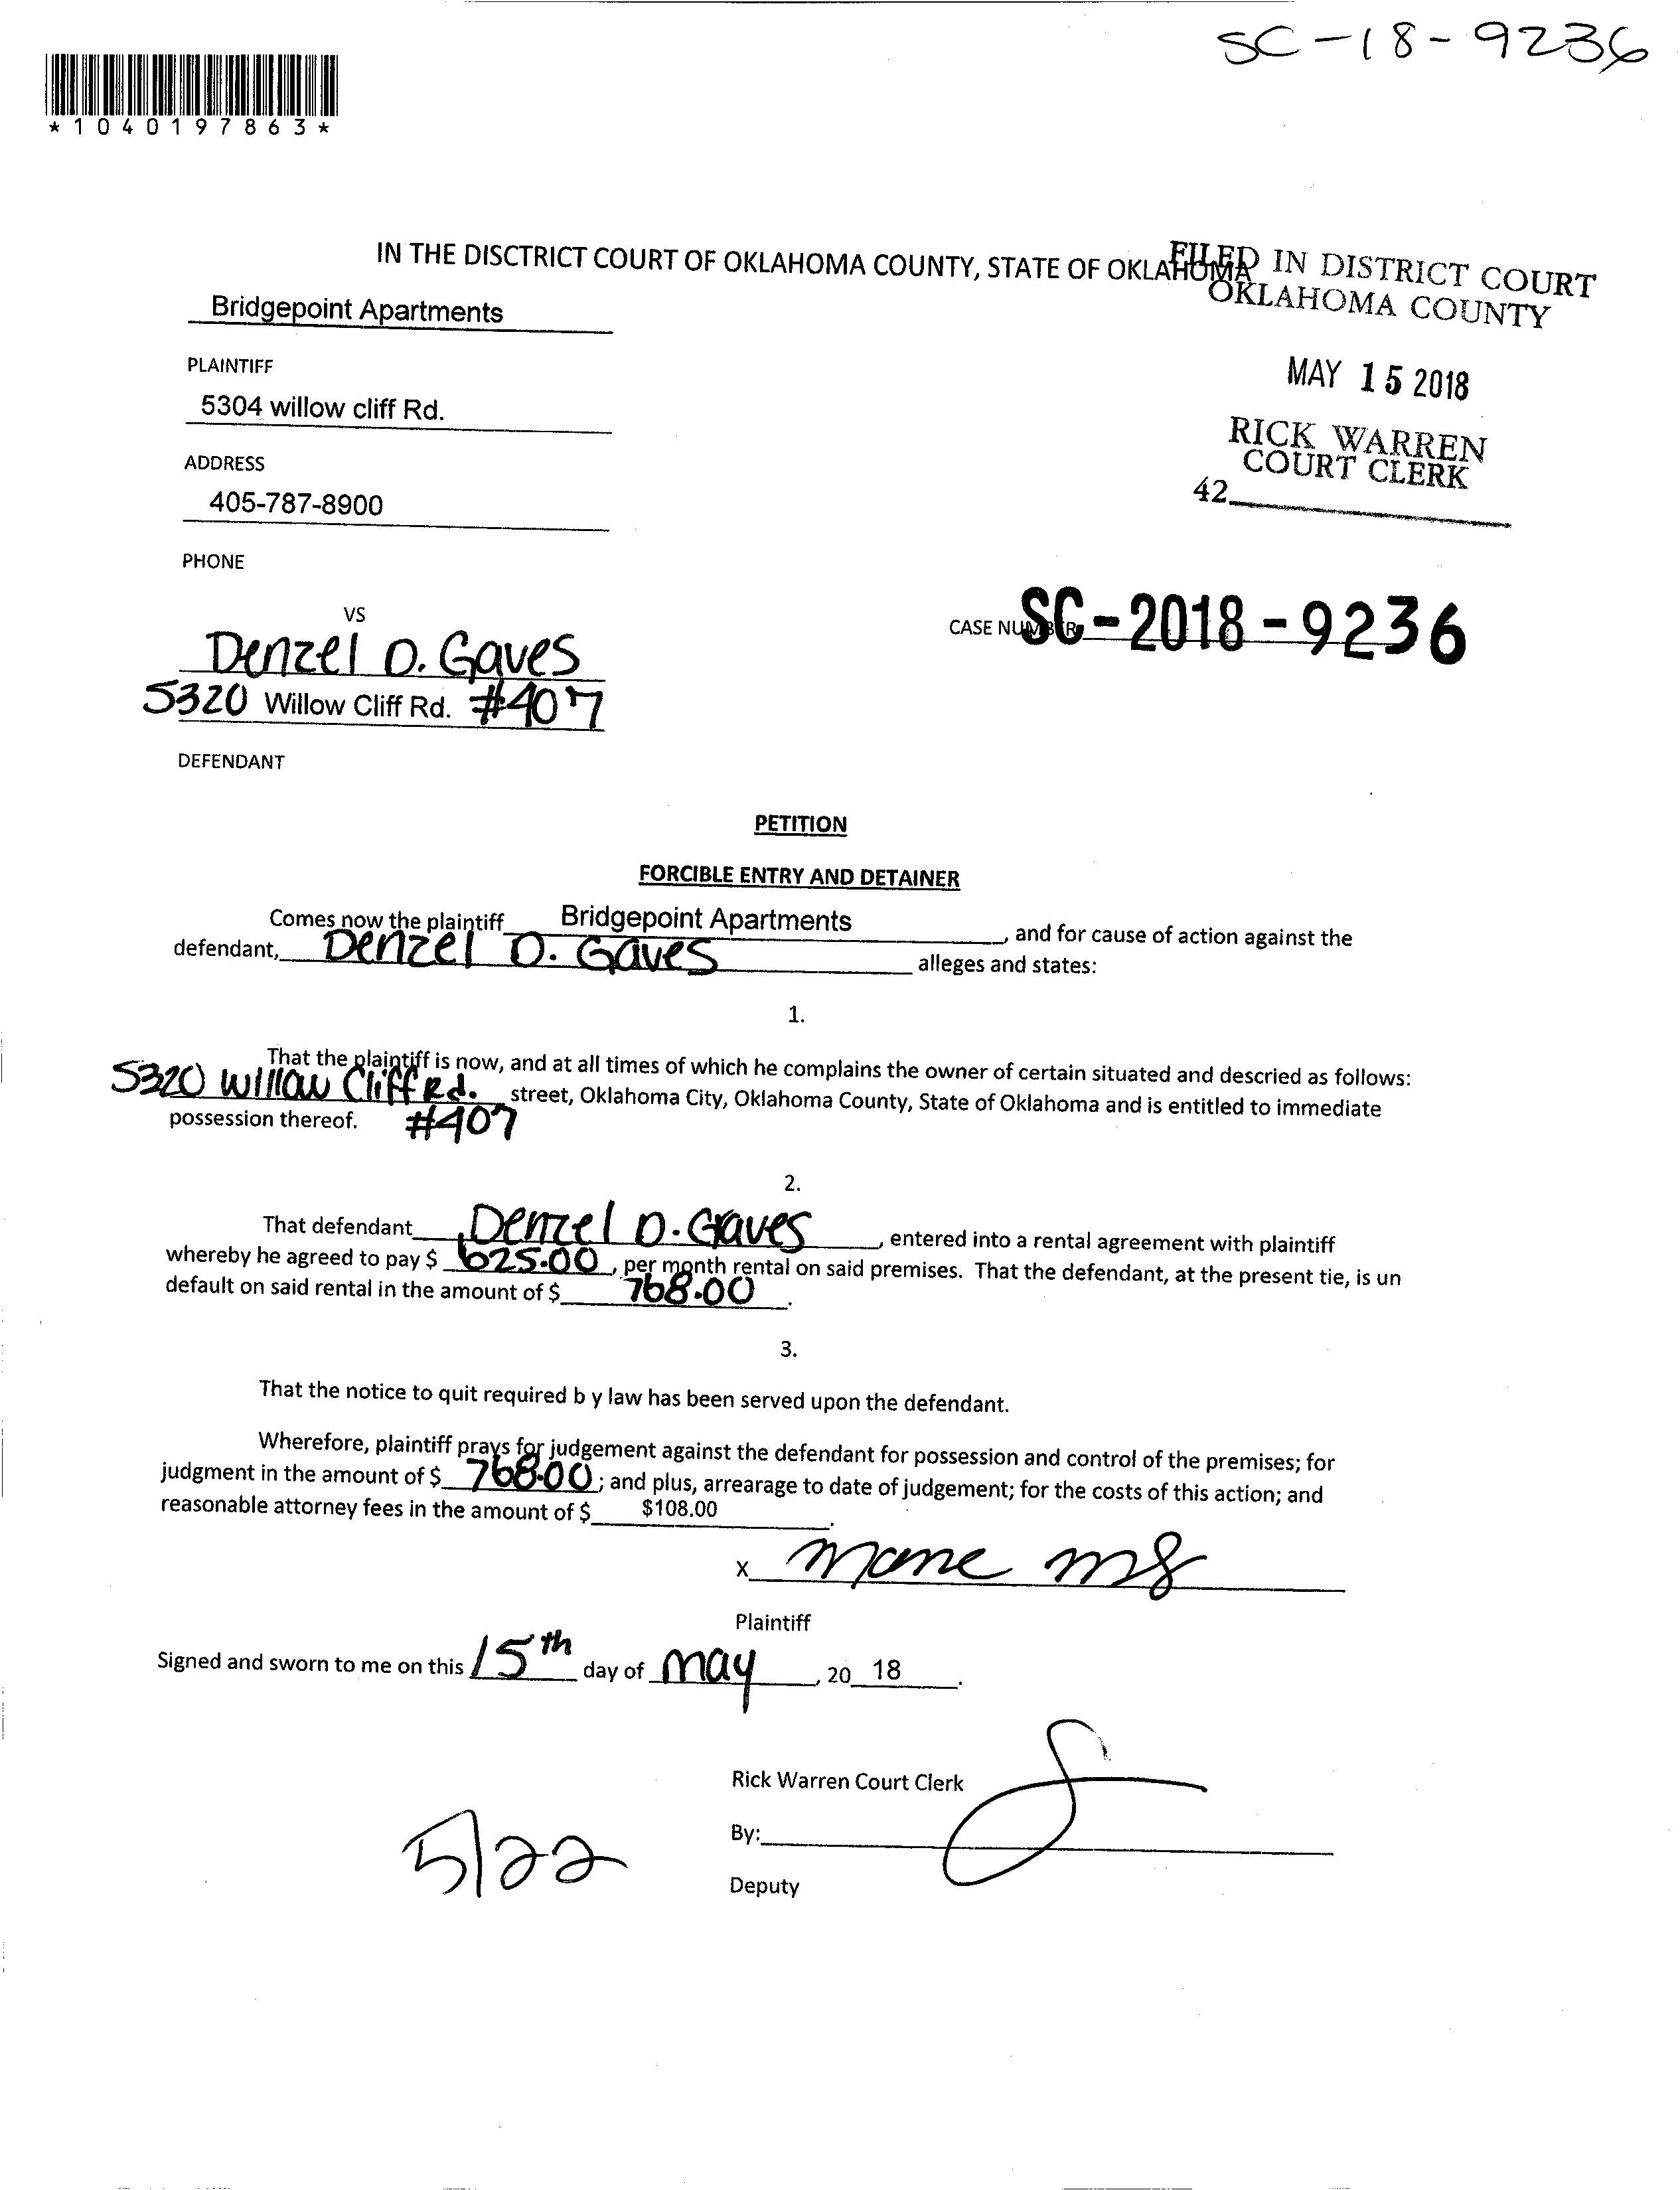 SC-18-9236
*1040197863*
IN THE DISCTRICT COURT OF OKLAHOMA COUNTY, STATE OF OKLAHOMA
FILED IN DISTRICT COURT
OKLAHOMA COUNTY
Bridgepoint Apartments
PLAINTIFF
MAY 15 2018
5304 willow cliff Rd.
RICK WARREN
COURT CLERK
ADDRESS
42
405-787-8900
PHONE
VS
CASE NUMBER SC-2018-9236
Denzel D. Gaves
5320 Willow Cliff Rd. #407
DEFENDANT
PETITION
FORCIBLE ENTRY AND DETAINER
Comes now the plaintiff Bridgepoint Apartments, and for cause of action against the
defendant, Denzel D. Gaves alleges and states:
1.
That the plaintiff is now, and at all times of which he complains the owner of certain situated and descried as follows:
5320 Willow Cliff Rd. street, Oklahoma City, Oklahoma County, State of Oklahoma and is entitled to immediate
possession thereof. #407
2.
That defendant Denzel D. Graves, entered into a rental agreement with plaintiff
whereby he agreed to pay $ 625.00, per month rental on said premises. That the defendant, at the present tie, is un
default on said rental in the amount of $ 768.00.
3.
That the notice to quit required b y law has been served upon the defendant.
Wherefore, plaintiff prays for judgement against the defendant for possession and control of the premises; for
judgment in the amount of $ 768.00; and plus, arrearage to date of judgement; for the costs of this action; and
reasonable attorney fees in the amount of $ $108.00.
X
Plaintiff
Signed and sworn to me on this 15th day of may, 20 18.
Rick Warren Court Clerk
By:
Deputy
5/22